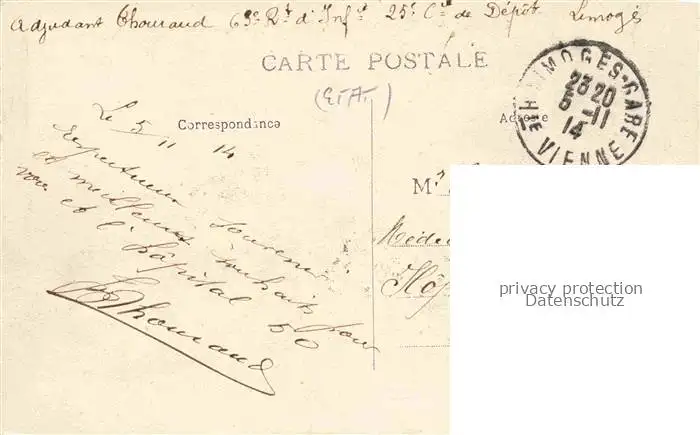 Adjudant Thouraud 63e Rt d'Infie 25e Cie de Dépôt Limoges
CARTE POSTALE
(ETAT)
Correspondance
Adresse
LIMOGES-GARE
23 20
5 -11
14
HTE VIENNE
Le 5/11 14
Respectueux souvenir
et meilleurs souhaits pour
vous et l'hôpital 50
Thouraud
M.
Méde
Hôp
privacy protection
Datenschutz